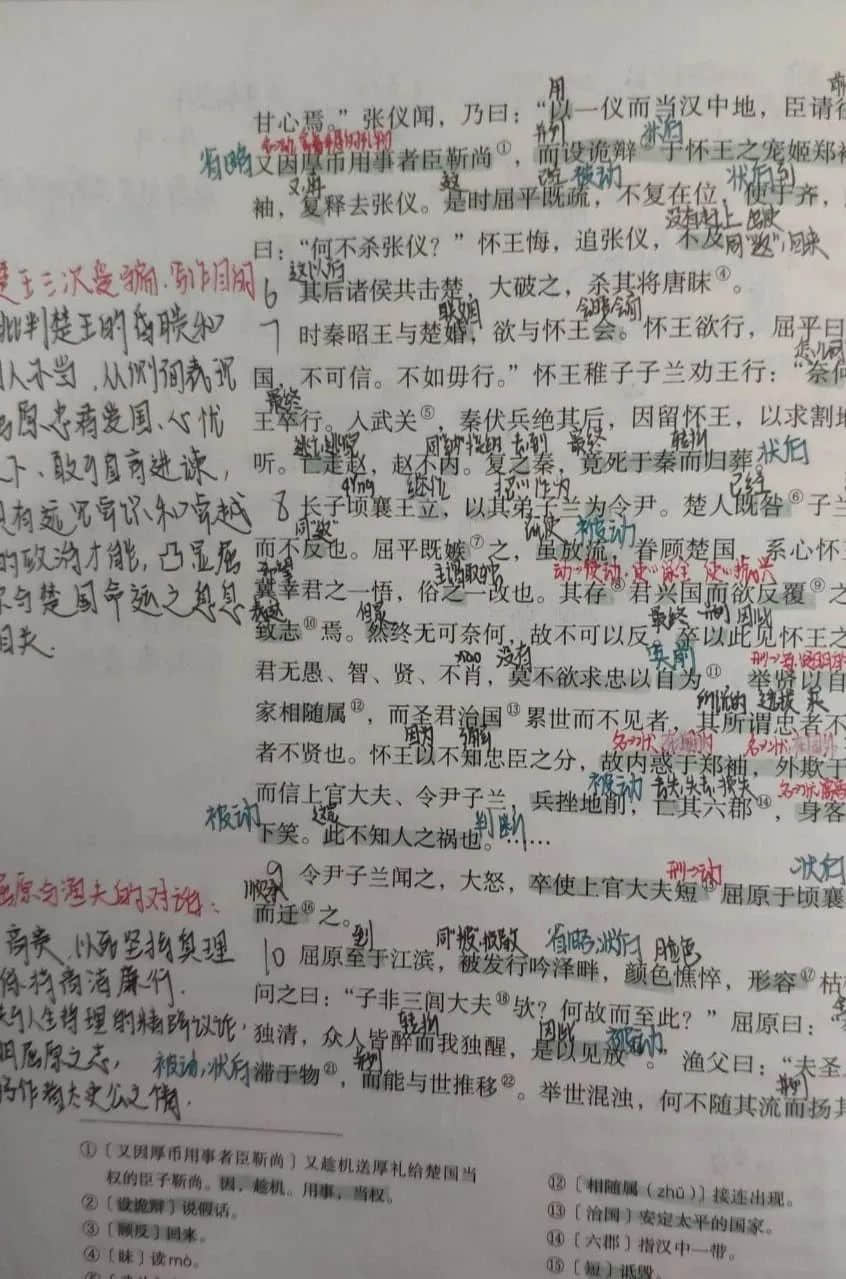 用
甘心焉。”张仪闻，乃曰：“以一仪而当汉中地，臣请往
并列
状后
省略
又因厚币用事者臣靳尚①，而设诡辩②于怀王之宠姬郑袖
又，再
疏
被动
状后
到
袖，复释去张仪。是时屈平既疏，不复在位，使于齐，
没有赶上
出使
曰：“何不杀张仪？”怀王悔，追张仪，不及
同“返”，回来
这以后
楚王三次受骗，写作目的
6 其后诸侯共击楚，大破之，杀其将唐眜④。
批判楚王的昏聩和
联姻
会晤会面
7 时秦昭王与楚婚，欲与怀王会。怀王欲行，屈平曰
用人不当，从侧面表现
怎么可
国，不可信。不如毋行。”怀王稚子子兰劝王行：“奈何
屈原忠君爱国、心忧
最终
王卒行。入武关⑤，秦伏兵绝其后，因留怀王，以求割地
天下、敢于直言进谏，
逃亡逃跑
同“纳”接纳
去，到
最终
转折
状后
听。亡走赵，赵不内。复之秦，竟死于秦而归葬。
具有远见卓识和卓越
qǐng
继位
把……作为
已经
8 长子顷襄王立，以其弟子兰为令尹。楚人既咎⑥子兰
的政治才能，凸显屈
同“返”
被动
而不反也。屈平既嫉⑦之，虽放流，眷顾楚国，系心怀王
原与楚国命运之息息
希望
主谓取独
动->使动，使……保全
使……振兴
冀幸君之一悟，俗之一改也。其存⑧君兴国而欲反覆⑨之
相关.
表达
但是
最终
并列
因此
致志⑩焉。然终无可奈何，故不可以反，卒以此见怀王之
没有
君无愚、智、贤、不肖，莫不欲求忠以自为⑪，举贤以自
所说的
选拔
家相随属⑫，而圣君治国⑬累世而不见者，其所谓忠者不
因为
名->状
名->状
者不贤也。怀王以不知忠臣之分，故内惑于郑袖，外欺于
被动
丢失，失去，损失
名->状
而信上官大夫、令尹子兰，兵挫地削，亡其六郡⑭，身客
被动
这是
判断
下笑。此不知人之祸也。……
形->动
状后
9 令尹子兰闻之，大怒，卒使上官大夫短⑮屈原于顷襄
屈原与渔夫的对话：
顺承
而迁⑯之。
到
同“披”，披散
省略，状后
脸色
10 屈原至于江滨，被发行吟泽畔，颜色憔悴，形容⑰枯
高贵，以死坚持真理
保持高洁廉行.
问之曰：“子非三闾大夫⑱欤？何故而至此？”屈原曰：“
对人生哲理的精辟议论，
转折
因此
被动
独清，众人皆醉而我独醒，是以见放。”渔父曰：“夫圣
明屈原之志，
被动，状后
并列
并列
滞于物㉑，而能与世推移㉒。举世混浊，何不随其流而扬其
写作者太史公之情.
①〔又因厚币用事者臣靳尚〕又趁机送厚礼给楚国当
权的臣子靳尚。因，趁机。用事，当权。
②〔设诡辩〕说假话。
③〔顾反〕回来。
④〔眜〕读mò。
⑫〔相随属（zhǔ）〕接连出现。
⑬〔治国〕安定太平的国家。
⑭〔六郡〕指汉中一带。
⑮〔短〕诋毁。